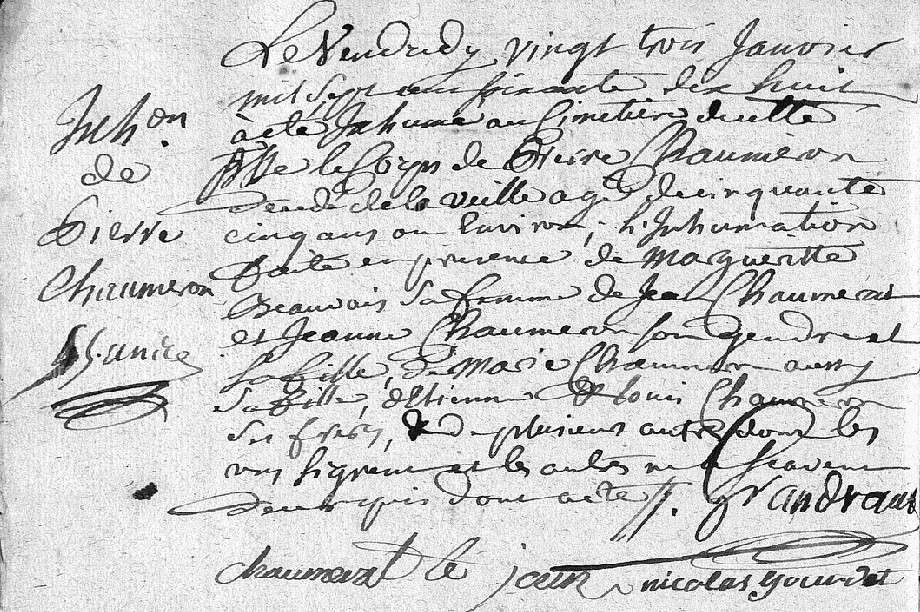 Inhon.
de
Pierre
Chaumeron
Le Vendredy vingt trois Janvier
mil Sept cens soixante dix huit
a été Inhumé au Cimetière de cette
psse le Corps de Pierre Chaumeron
décédé de la veille agé de cinquante
cinq ans ou Environ, l'Inhumation
faite en presence de Margueritte
Beauvais sa femme de Jean Chaumerat
et Jeanne Chaumeron son gendre et
sa fille, de Marie Chaumeron aussy
sa fille, d'Estienne & Louis Chaumeron
ses freres, & de plusieurs autres dont les
uns signent et les autres ne le scavent
de ce requis dont acte
chaumerat le jeun nicolas gourdet